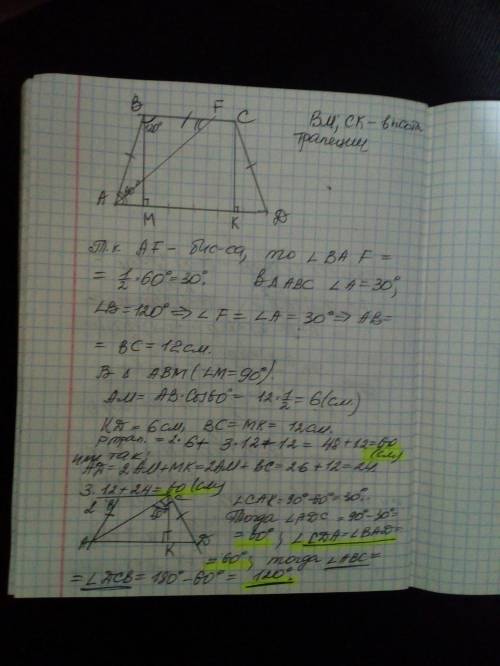 B F C
120°
BM, CK - высоты
трапеции
A M K D
Т.к. AF - бис-са, то ∠BAF =
= 1/2 · 60° = 30°. В ΔABC ∠A = 30°,
∠B = 120° ⇒ ∠F = ∠A = 30° ⇒ AB =
= BC = 12 см.
В Δ ABM (∠M = 90°)
AM = AB · cos60° = 12 · 1/2 = 6 (см)
KD = 6 см, BC = MK = 12 см.
Pтрап. = 2·6 + 3·12 + 12 = 48 + 12 = 60 (см)
или так:
AD = 2AM + MK = 2AM + BC = 2·6 + 12 = 24
3·12 + 24 = 60 (см)
2 B C
∠CAK = 90° - 60° = 30°.
Тогда ∠ADC = 90° - 30° =
A K D
= 60°; ∠CDA = ∠BAD =
= 60°; тогда ∠ABC =
= ∠DCB = 180° - 60° = 120°.